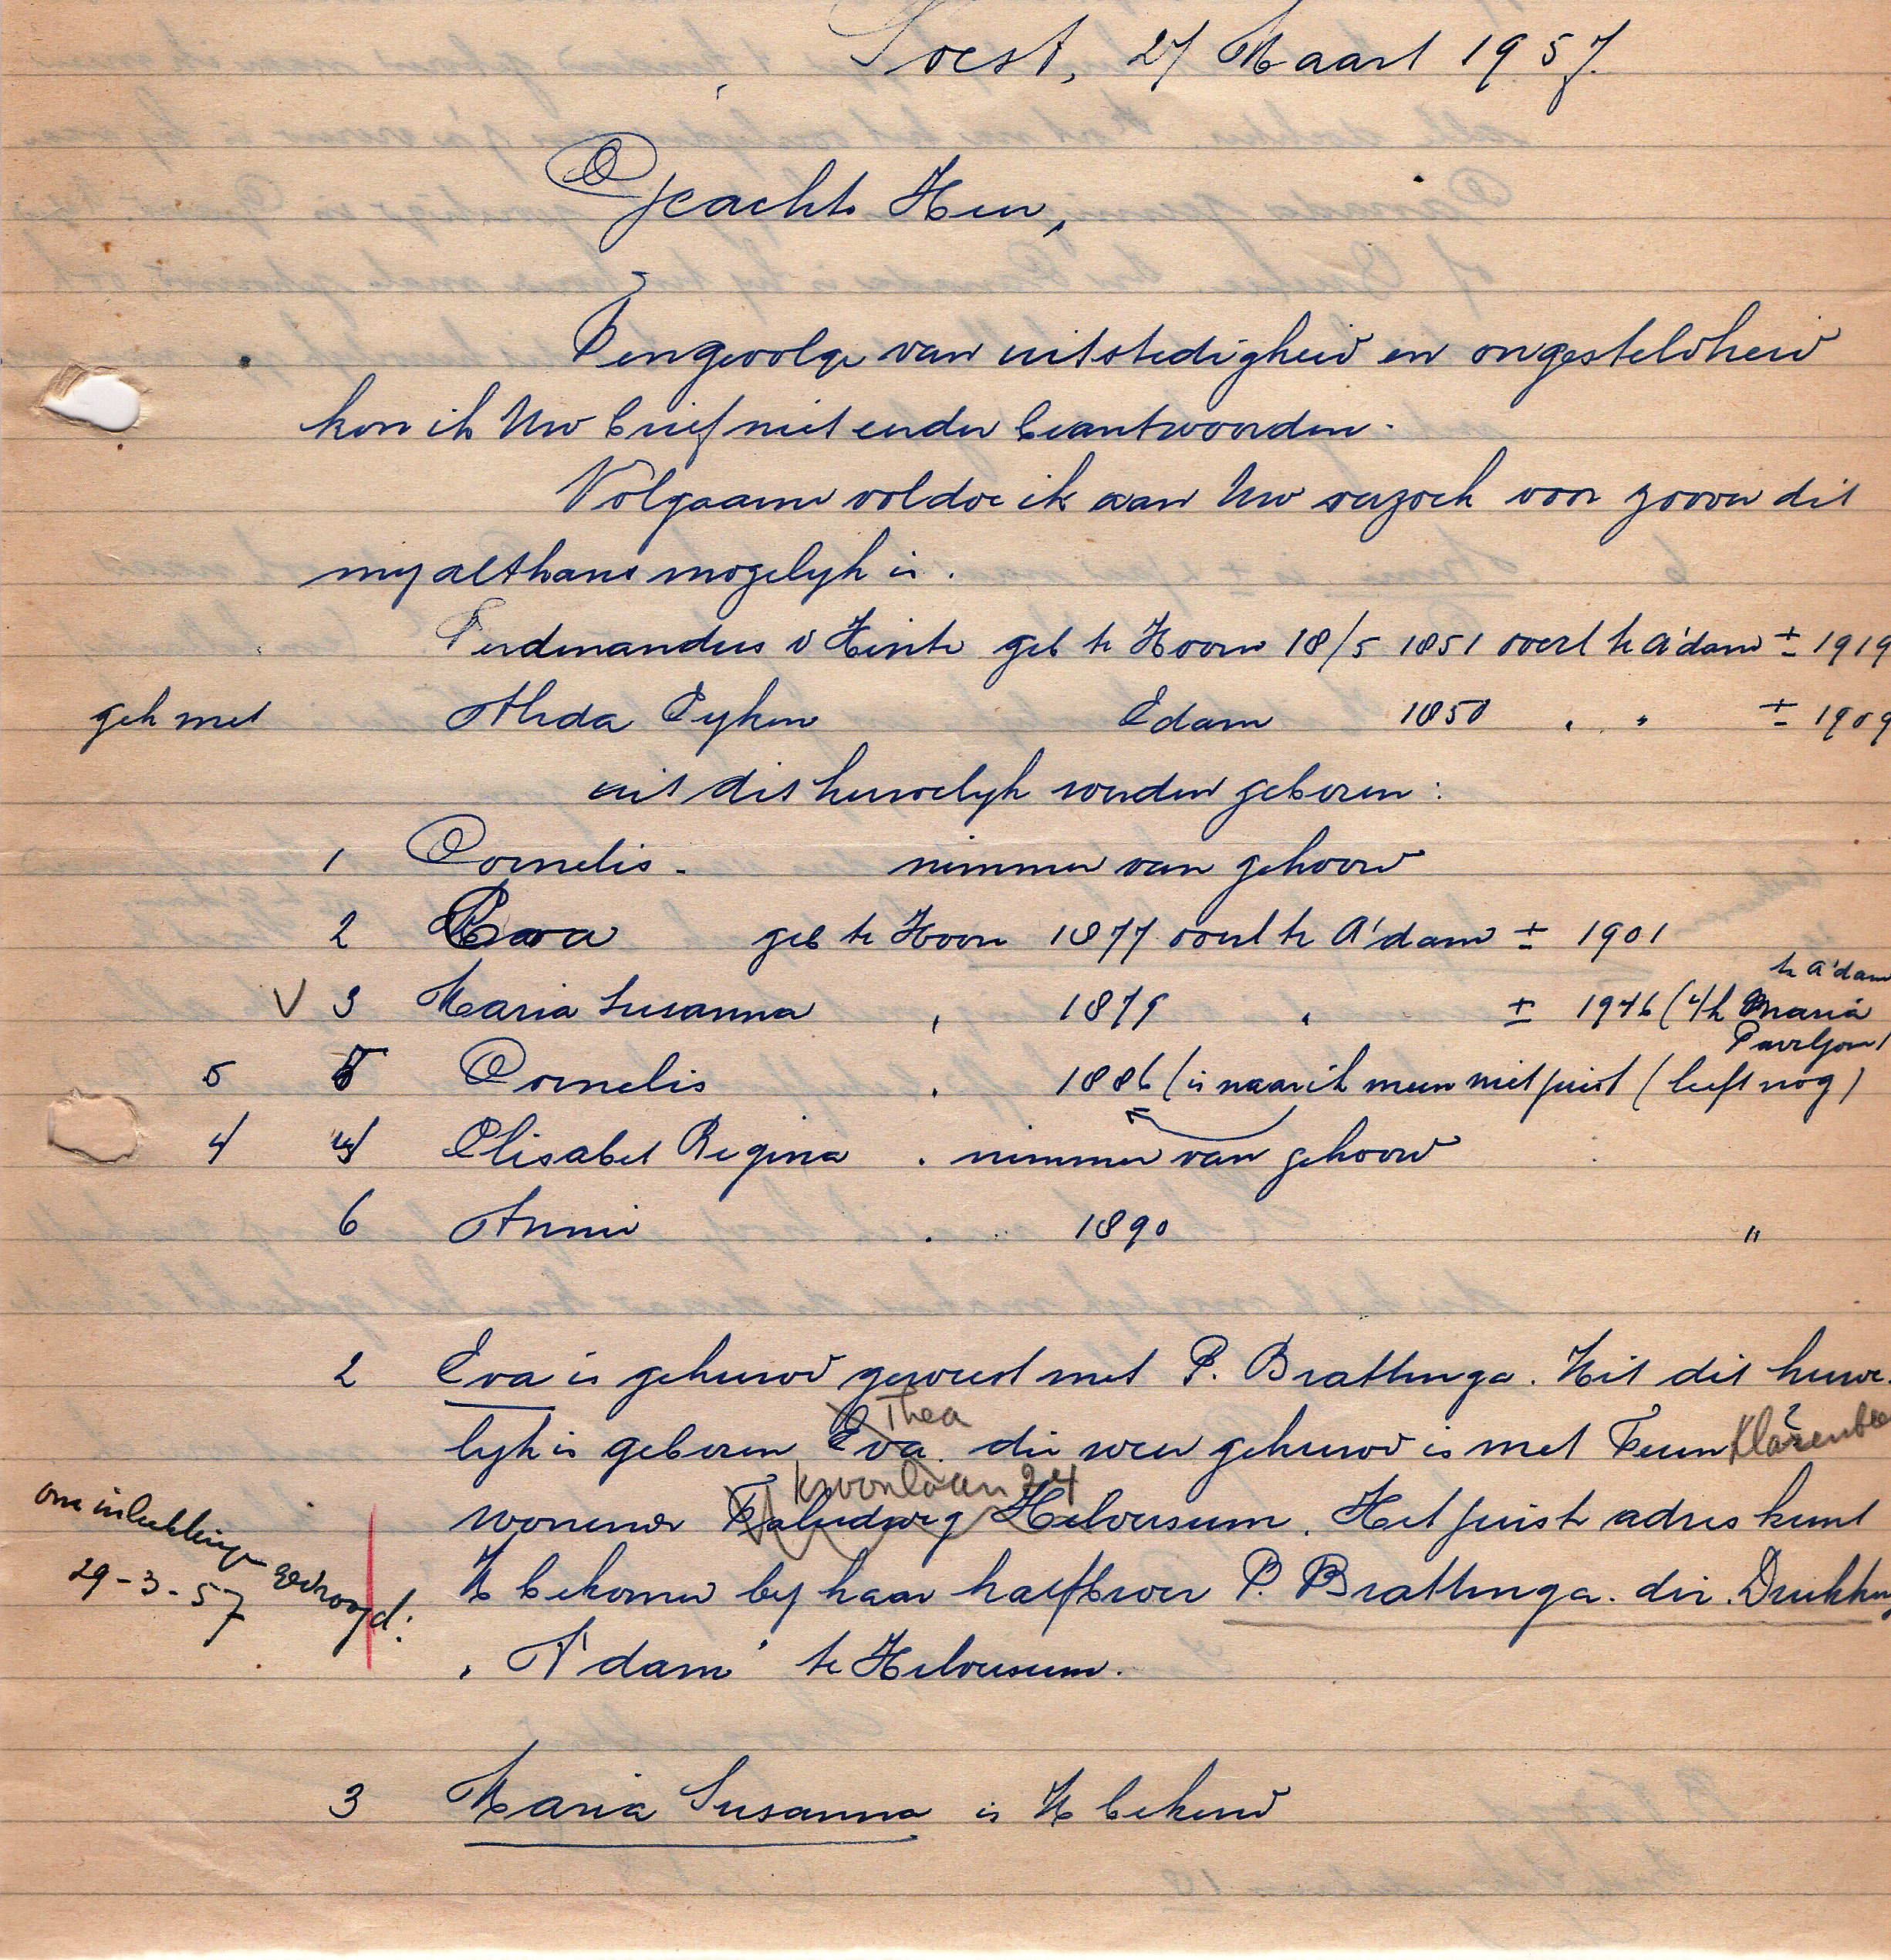 Soest, 27 Maart 1957.
Geachte Heer,
Tengevolge van uitstedigheid en ongesteldheid
kon ik Uw brief niet eerder beantwoorden.
Volgaarne voldoe ik aan Uw verzoek voor zoover dit
my althans mogelyk is.
Ferdinandus v Hinte geb te Hoorn 18/5 1851 overl te A'dam ± 1919
geh met Alida Eyken Edam 1850 " " ± 1909
uit dit huwelyk werden geboren:
1 Cornelis - nimmer van gehoord
2 Eva geb te Hoorn 1877 overl te A'dam ± 1901
te A'dam
V 3 Maria Susanna " 1879 " ± 1946 (i/h Maria
Paviljoen)
5 5 Cornelis " 1886 (is naar ik meen niet juist (leeft nog)
4 4 Elisabet Regina " nimmer van gehoord
6 Annie " 1890 "
2 Eva is gehuwd geweest met P. Brattinga. Uit dit huwe-
Thea
lyk is geboren Eva die weer gehuwd is met Teun Klarenbee
?
Kroonlaan 24
wonende Hilversum. Het juiste adres kunt
U bekomen by haar halfbroer P. Brattinga. dir. Drukkery
"A'dam" te Hilversum.
om inlichtingen gevraagd:
29-3-57
3 Maria Susanna is U bekend